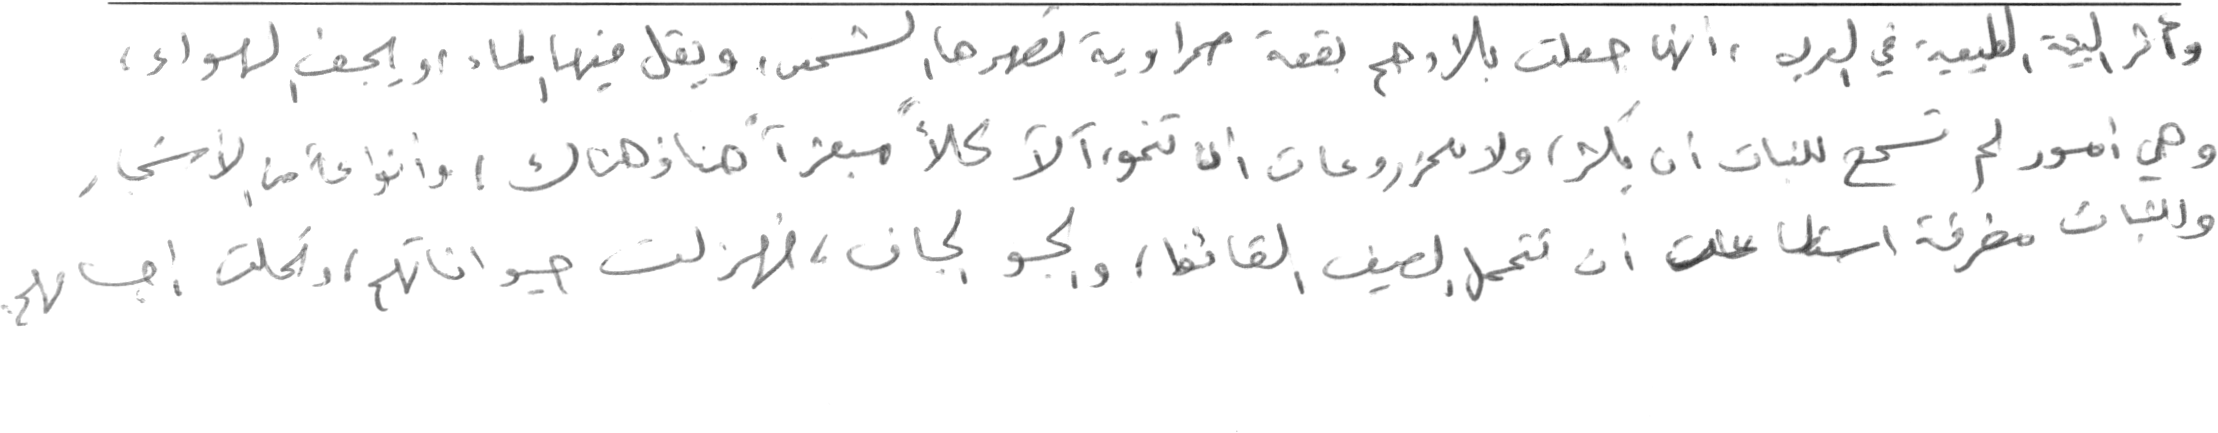 وأثر البيئة الطبيعية في العرب، أنها جعلت بلادهم بقعة صحراوية تصهرها الشمس، ويقل فيها الماء، ويجف الهواء،
وهي أمور لم تسمح للنبات أن يكثر، ولا للمزروعات أن تنمو، آلآ كلأً مبعثرآً هنا وهناك، وأنواعآً من الأشجار
والنبات مفرقة استطاعت أن تتحمل الصيف القائظ، والجو الجاف، فهزلت حيواناتهم، ونحلت أجسامهم.